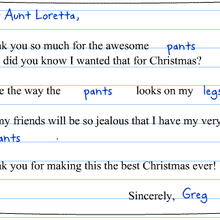 Aunt Loretta,
k you so much for the awesome pants
did you know I wanted that for Christmas?
e the way the pants looks on my legs
ny friends will be so jealous that I have my very
ants .
k you for making this the best Christmas ever!
Sincerely, Greg